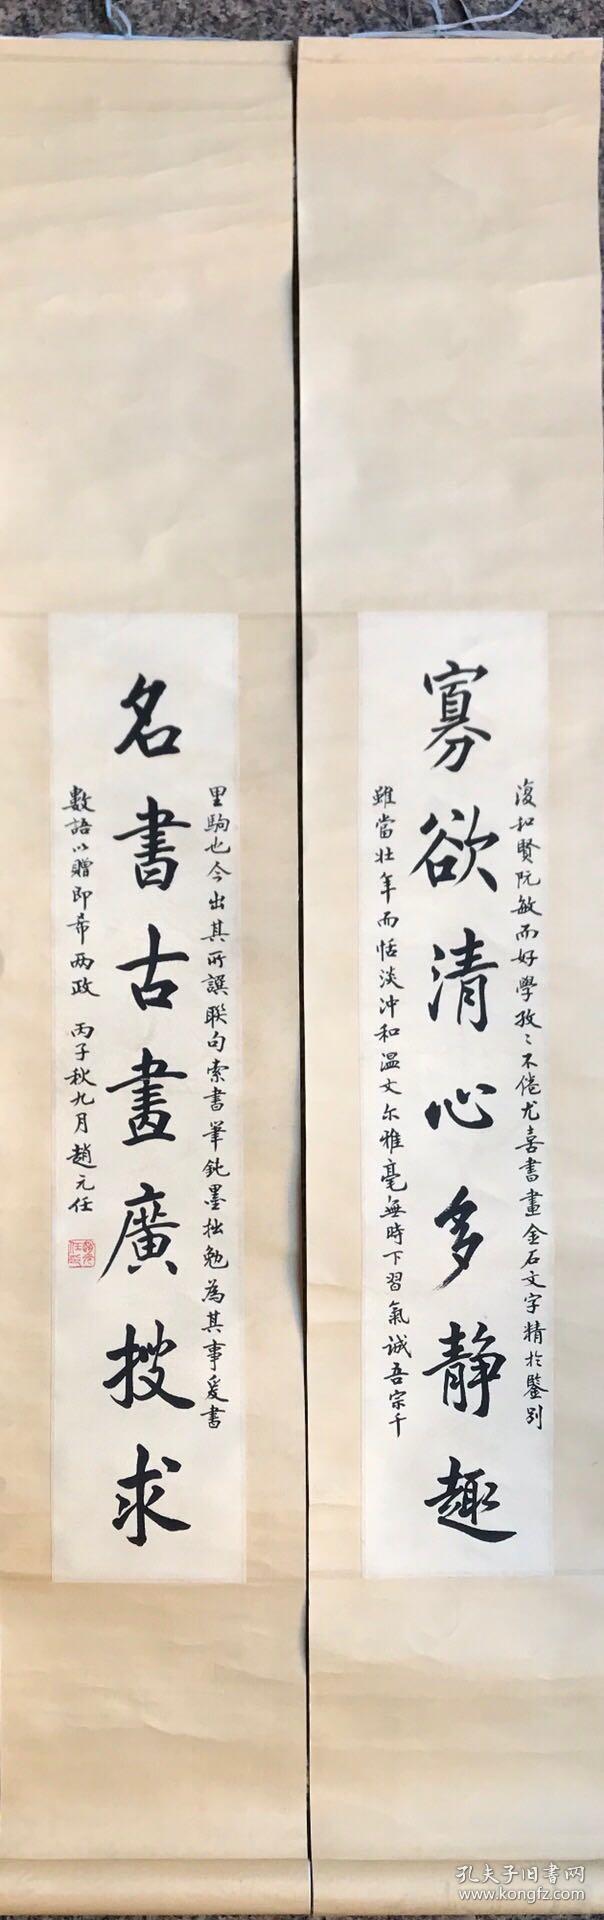 寡欲清心多静趣
復初賢阮敏而好學孜〻不倦尤喜書畫金石文字精於鑒別
雖當壯年而恬淡沖和温文尔雅毫無時下習氣诚吾宗千
名書古畫廣搜求
里駒也今出其所譔聯句索書筆鈍墨拙勉為其事爰書
數語以贈即希两政 丙子秋九月趙元任
孔夫子旧书网
www.kongfz.com